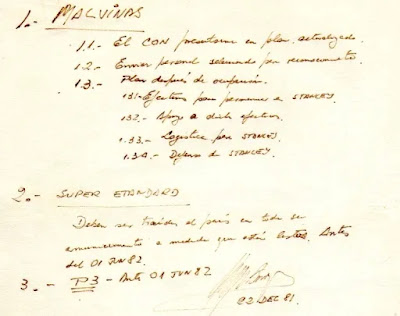 1.- MALVINAS
1.1.- El CON presentarme un plan actualizado.
1.2.- Enviar personal seleccionado para reconocimiento.
1.3.- Plan después de ocupación.
1.31.- Efectivos para permanecer en STANLEY.
1.32.- Apoyo a dichos efectivos.
1.33.- Logística para STANLEY.
1.34.- Defensa de STANLEY.
2.- SUPER ETANDARD
Deben ser traídos al país en todo su
a medida que estén listos. Antes
del 01 JUN 82.
3.- P3 - Ante 01 JUN 82
22 DEC 81.